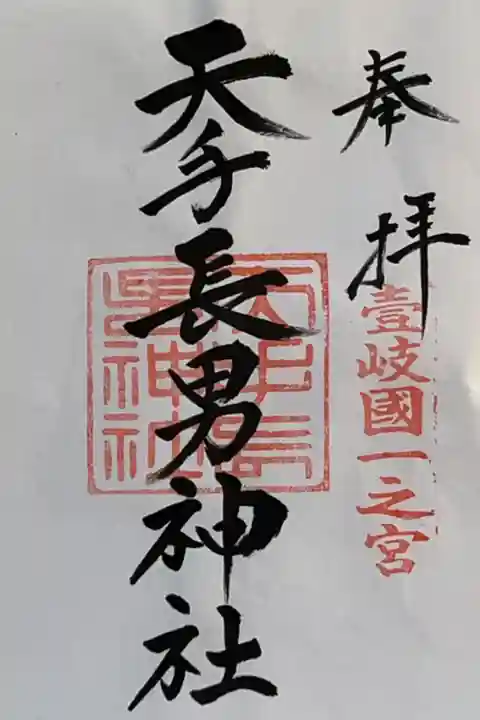 奉拝
壹岐國一之宮
天手長男神社
天手長男神社